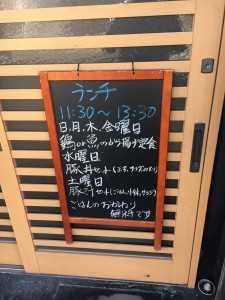 ランチ
11:30～13:30
日、月、木、金曜日
鶏or魚のから揚げ定食
水曜日
豚丼セット(
土曜日
豚汁セット(ごはん、小鉢、サラダ)
ごはんのおかわり
無料です